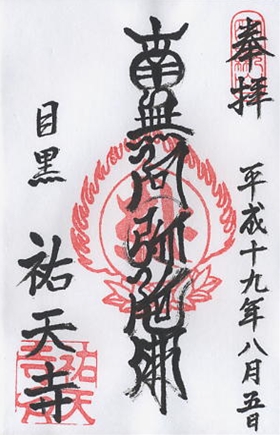 奉拝
平成十九年八月五日
南無阿弥陀佛
目黒
祐天寺